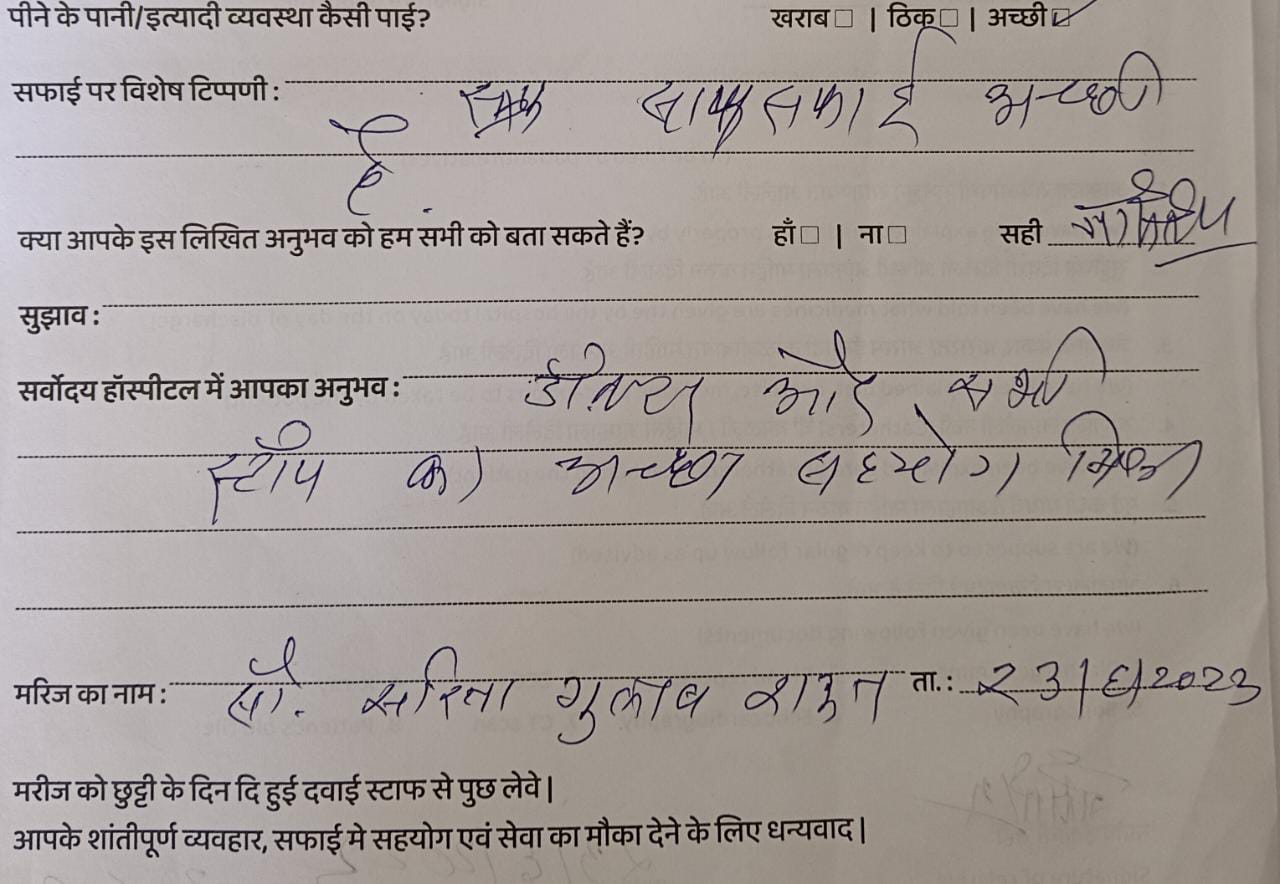 पीने के पानी/इत्यादी व्यवस्था कैसी पाई? खराब□ | ठिक□ | अच्छी☑
सफाई पर विशेष टिप्पणी : साफ सफाई अच्छी
है.
क्या आपके इस लिखित अनुभव को हम सभी को बता सकते हैं? हाँ□ | ना□ सही
सुझाव :
सर्वोदय हॉस्पीटल में आपका अनुभव : और सभी
स्टॉप का अच्छा सहयोग मिला
मरिज का नाम : सौ. सरिता गुलाब राऊत ता.: २3/६/2023
मरीज को छुट्टी के दिन दि हुई दवाई स्टाफ से पुछ लेवे |
आपके शांतीपूर्ण व्यवहार, सफाई मे सहयोग एवं सेवा का मौका देने के लिए धन्यवाद |